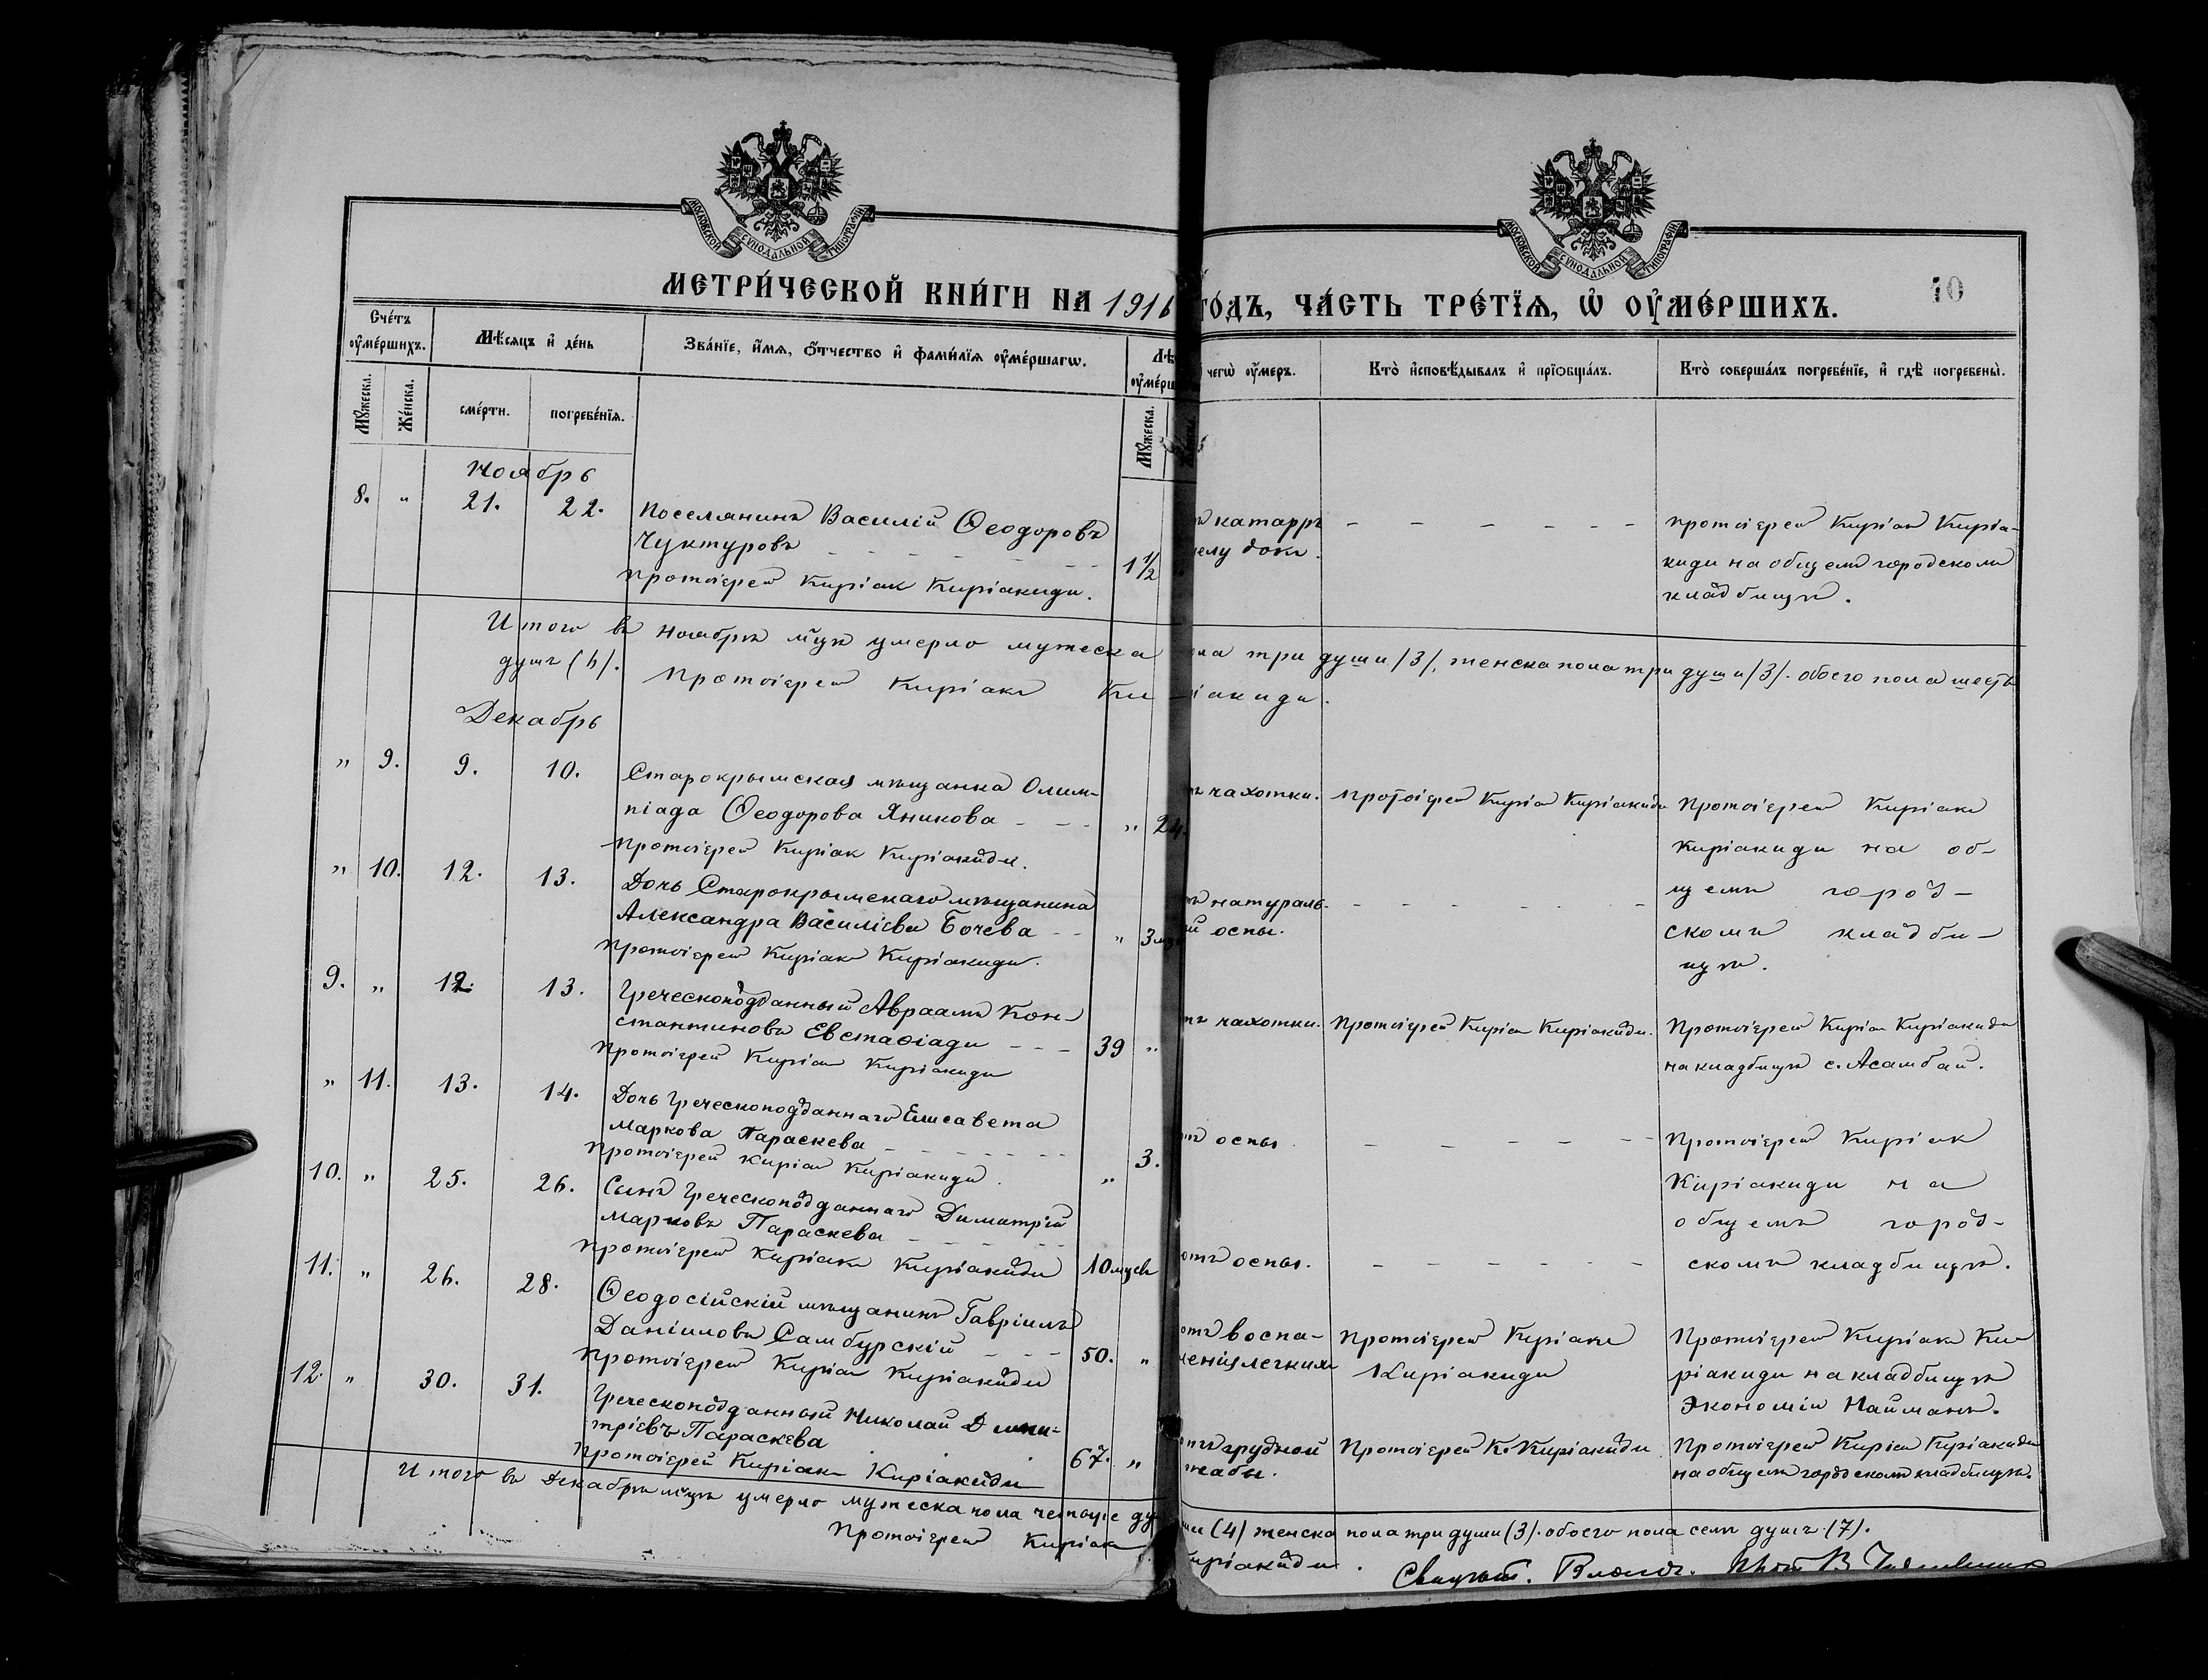 МОСКОВСКОЙ СѴНОДАЛЬНОЙ ТИПОГРАФІИ
МОСКОВСКОЙ СѴНОДАЛЬНОЙ ТИПОГРАФІИ
10
МЕТРИ́ЧЕСКОЙ КНИ́ГИ НА 1916 ГО́ДЪ, ЧА́СТЬ ТРЕ́ТЇѦ, Ѡ҆ ОУ҆МЕ́РШИХЪ.
Сче́тъ оу҆ме́ршихъ.
Мѣ́сяцъ и҆ де́нь
Зва́нїе, и҆́мѧ, ѻ҆́тчество и҆ фами́лїѧ оу҆ме́ршагѡ.
чегѡ̀ оу҆́меръ.
Кто̀ и҆сповѣ́дывалъ и҆ прїѡбща́лъ.
Кто̀ соверша́лъ погребе́нїе, и҆ гдѣ̀ погребены̀.
Мꙋ́жеска.
Же́нска.
сме́рти.
погребе́нїѧ.
Мꙋ́жеска.
Ноябрь
8. „ 21. 22. Поселянинъ Василій Ѳеодоровъ
Чуктуровъ 1½
Протоіерей Киріак Киріакиди.
катарръ
протоіерей Киріак Киріа-
киди на общемъ городскомъ
кладбищѣ.
Итого въ Ноябрѣ м-цѣ умерло мужеска пола три души (3), женска пола три души (3). обоего пола шесть
душъ (6). Протоіерей Киріакъ Киріакиди.
Декабрь
„ 9. 9. 10. Старокрымская мѣщанка Олим-
піада Ѳеодорова Яникова „ 24.
Протоіерей Киріак Киріакиди.
чахотки. Протоіерей Киріак Киріакиди Протоіерей Киріакъ
Киріакиди на об-
щемъ город-
скомъ кладби-
щѣ.
„ 10. 12. 13. Дочь Старокрымскаго мѣщанина
Александра Василіева Бочева „ 3
Протоіерей Киріакъ Киріакиди.
натураль-
оспы.
9. „ 12. 13. Греческоподданный Авраамъ Кон-
стантиновъ Евстаѳіади 39 „
Протоіерей Киріак Киріакиди
чахотки. Протоіерей Киріак Киріакиди. Протоіерей Киріак Киріакиди
на кладбищѣ с. Асамбай.
„ 11. 13. 14. Дочь Греческоподданнаго Елисавета
Маркова Параскева „ 3.
Протоіерей Киріак Киріакиди.
оспы
Протоіерей Киріак
Киріакиди на
общемъ город-
скомъ кладбищѣ.
10. „ 25. 26. Сынъ Греческоподданнаго Димитрій
Марковъ Параскева 10 мцевъ
Протоіерей Киріакъ Киріакиди
отъ оспы.
11. „ 26. 28. Ѳеодосійскій мѣщанинъ Гавріилъ
Даніиловъ Самбурскій 50. „
Протоіерей Киріак Киріакиди
отъ воспа-
ленія легкихъ
Протоіерей Киріакъ
Киріакиди
Протоіерей Киріакъ Ки-
ріакиди на кладбищѣ
Экономіи Найманъ.
12. „ 30. 31. Греческоподданный Николай Дими-
тріевъ Параскева 67. „
Протоіерей Киріакъ Киріакиди
отъ грудной
жабы.
Протоіерей К. Киріакиди
Протоіерей Киріак Киріакиди
на общемъ городскомъ кладбищѣ.
Итого въ Декабрѣ м-цѣ умерло мужеска пола четыре души (4) женска пола три души (3). обоего пола семь душъ (7).
Протоіерей Киріакъ Киріакиди.